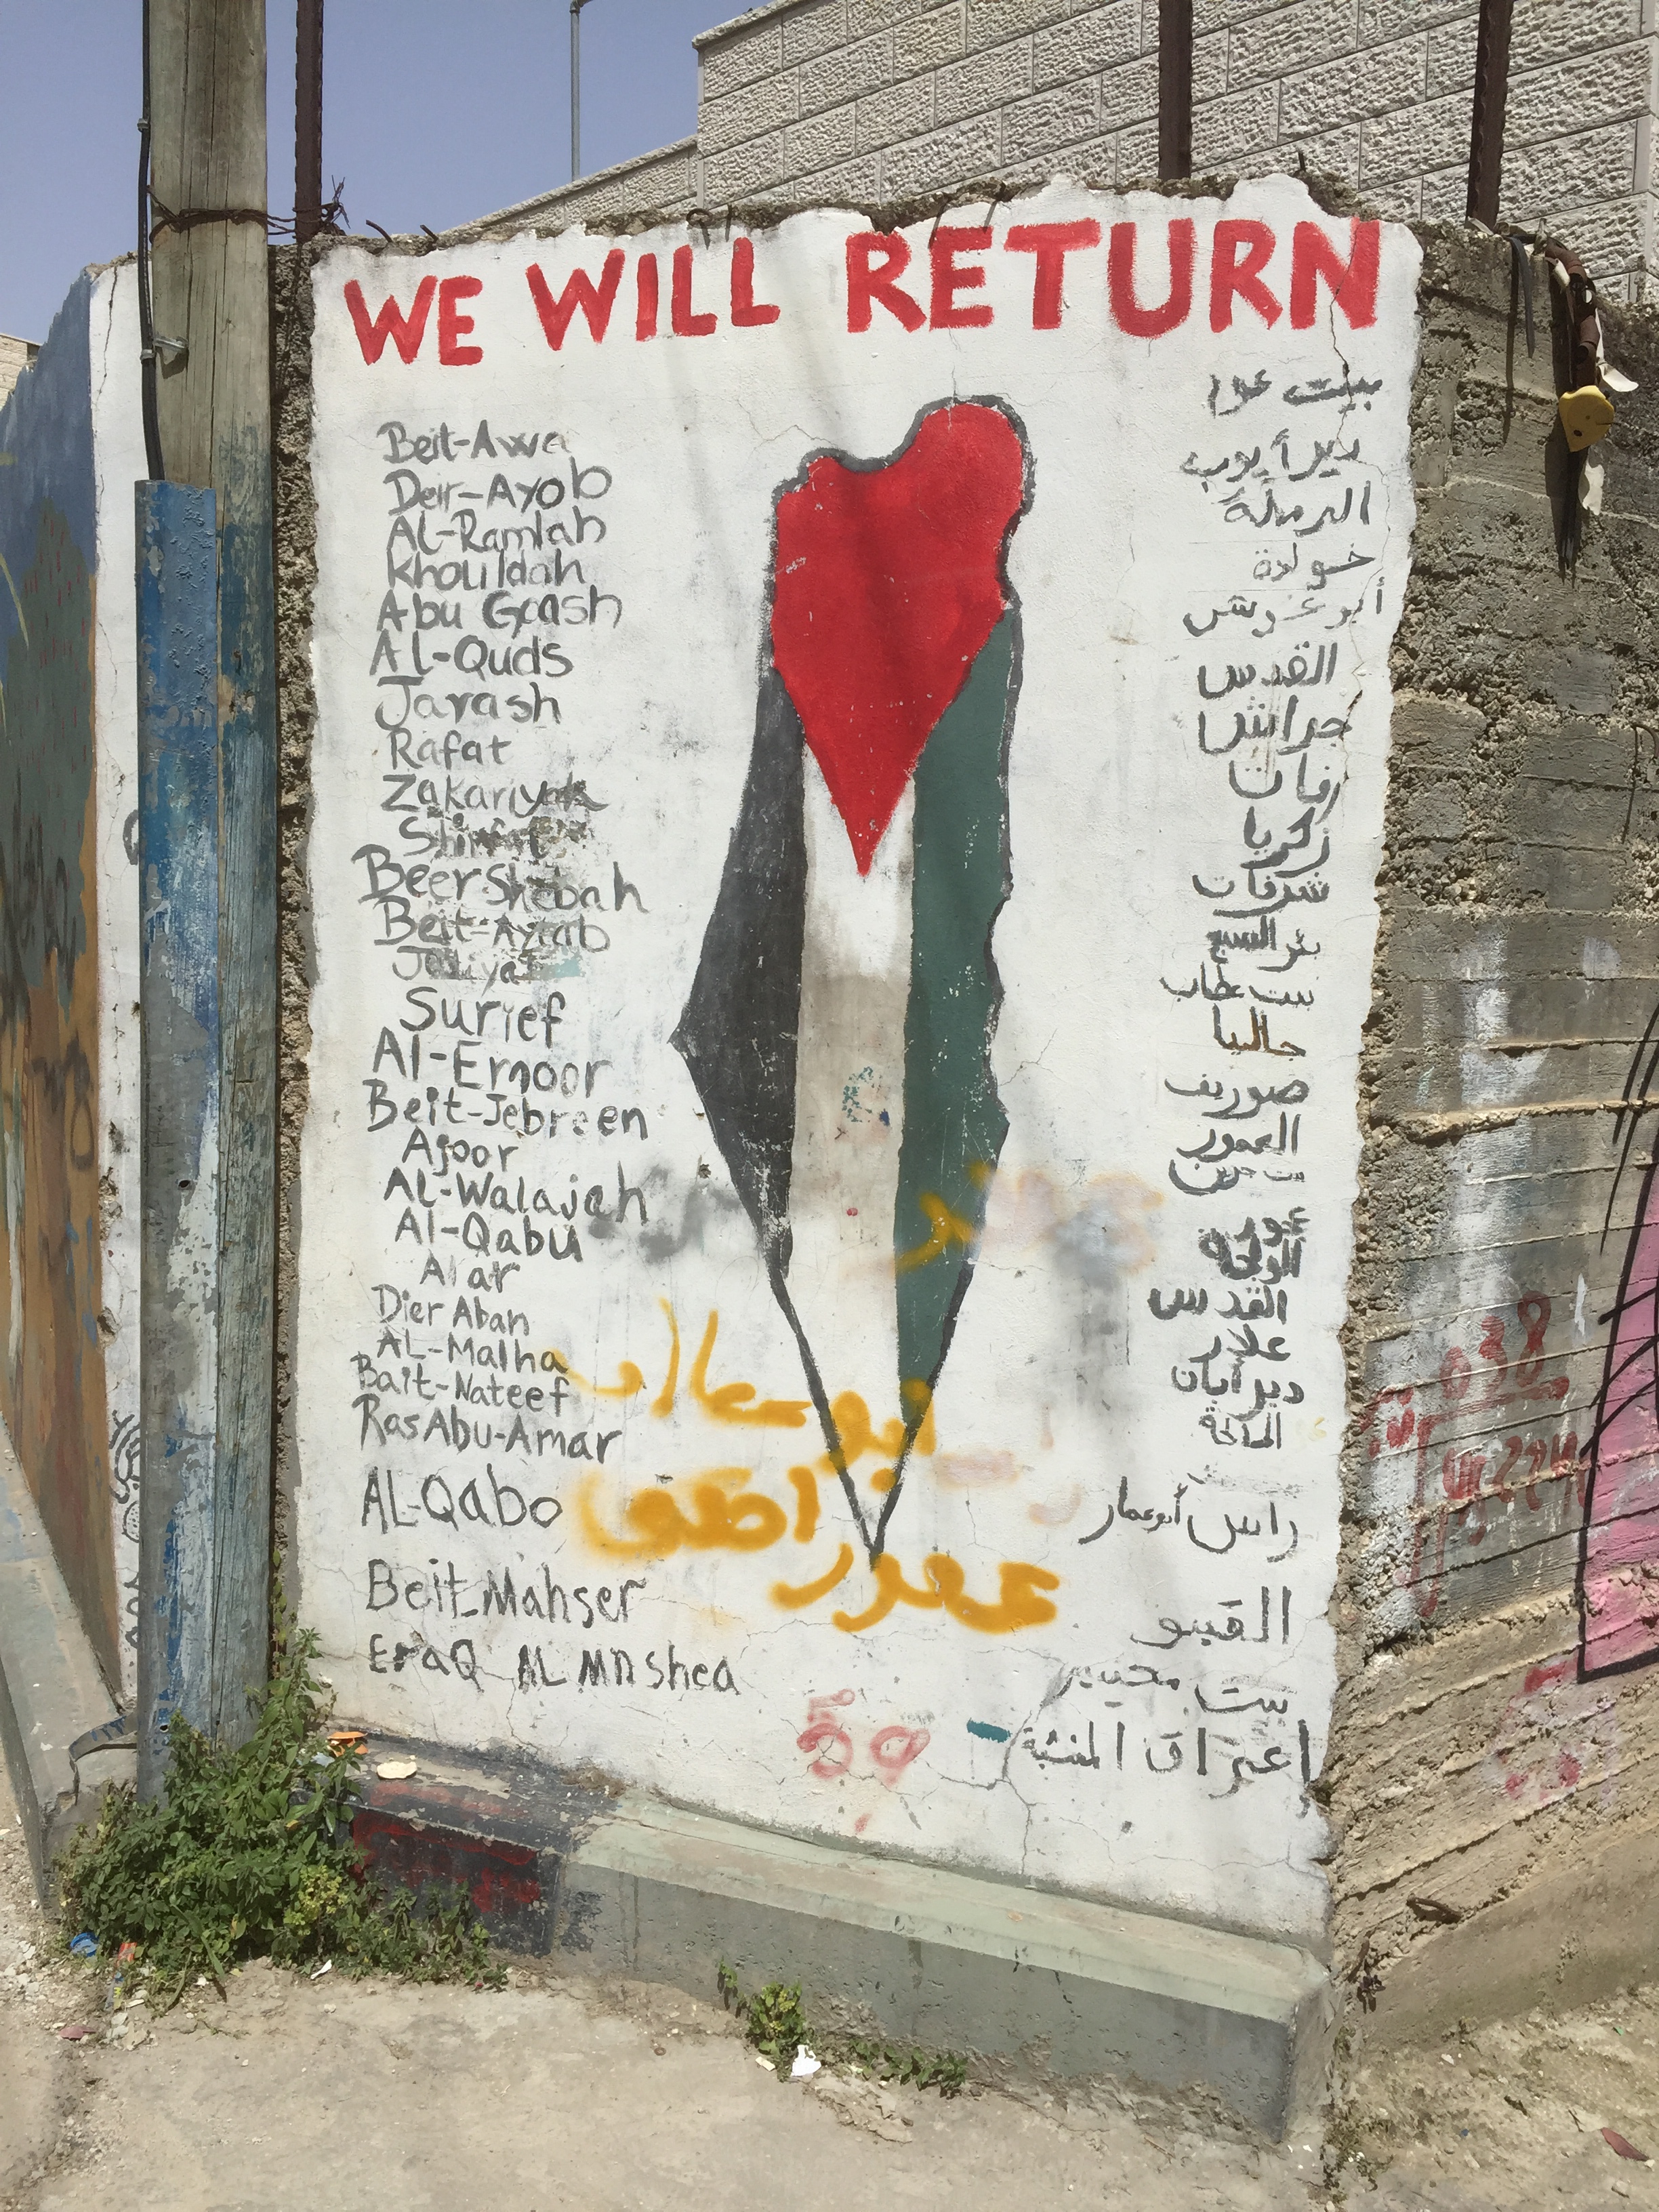 WE WILL RETURN
Beit-Awa
Deir-Ayob
Al-Ramlah
Khouldah
Abu Goash
Al-Quds
Jarash
Rafat
Zakariyah
BeerShebah
Beit-Aytab
Surief
Al-Emoor
Beit-Jebreen
Ajoor
AL-Walajah
Al-Qabu
Alar
Dier Aban
AL-Malha
Bait-Nateef
RasAbu-Amar
AL-Qabo
Beit-Mahser
EraQ AL MnShea
بيت عوا
دير أيوب
الرملة
خولدة
أبو غوش
القدس
جراش
رفات
زكريا
شرفات
بئر السبع
بيت عطاب
جاليا
صوريف
العمور
بيت جبرين
عجور
الولجة
القدس
علار
دير أبان
المالحة
راس أبو عمار
القبو
بيت محيسر
اعراق المنشية
59
038